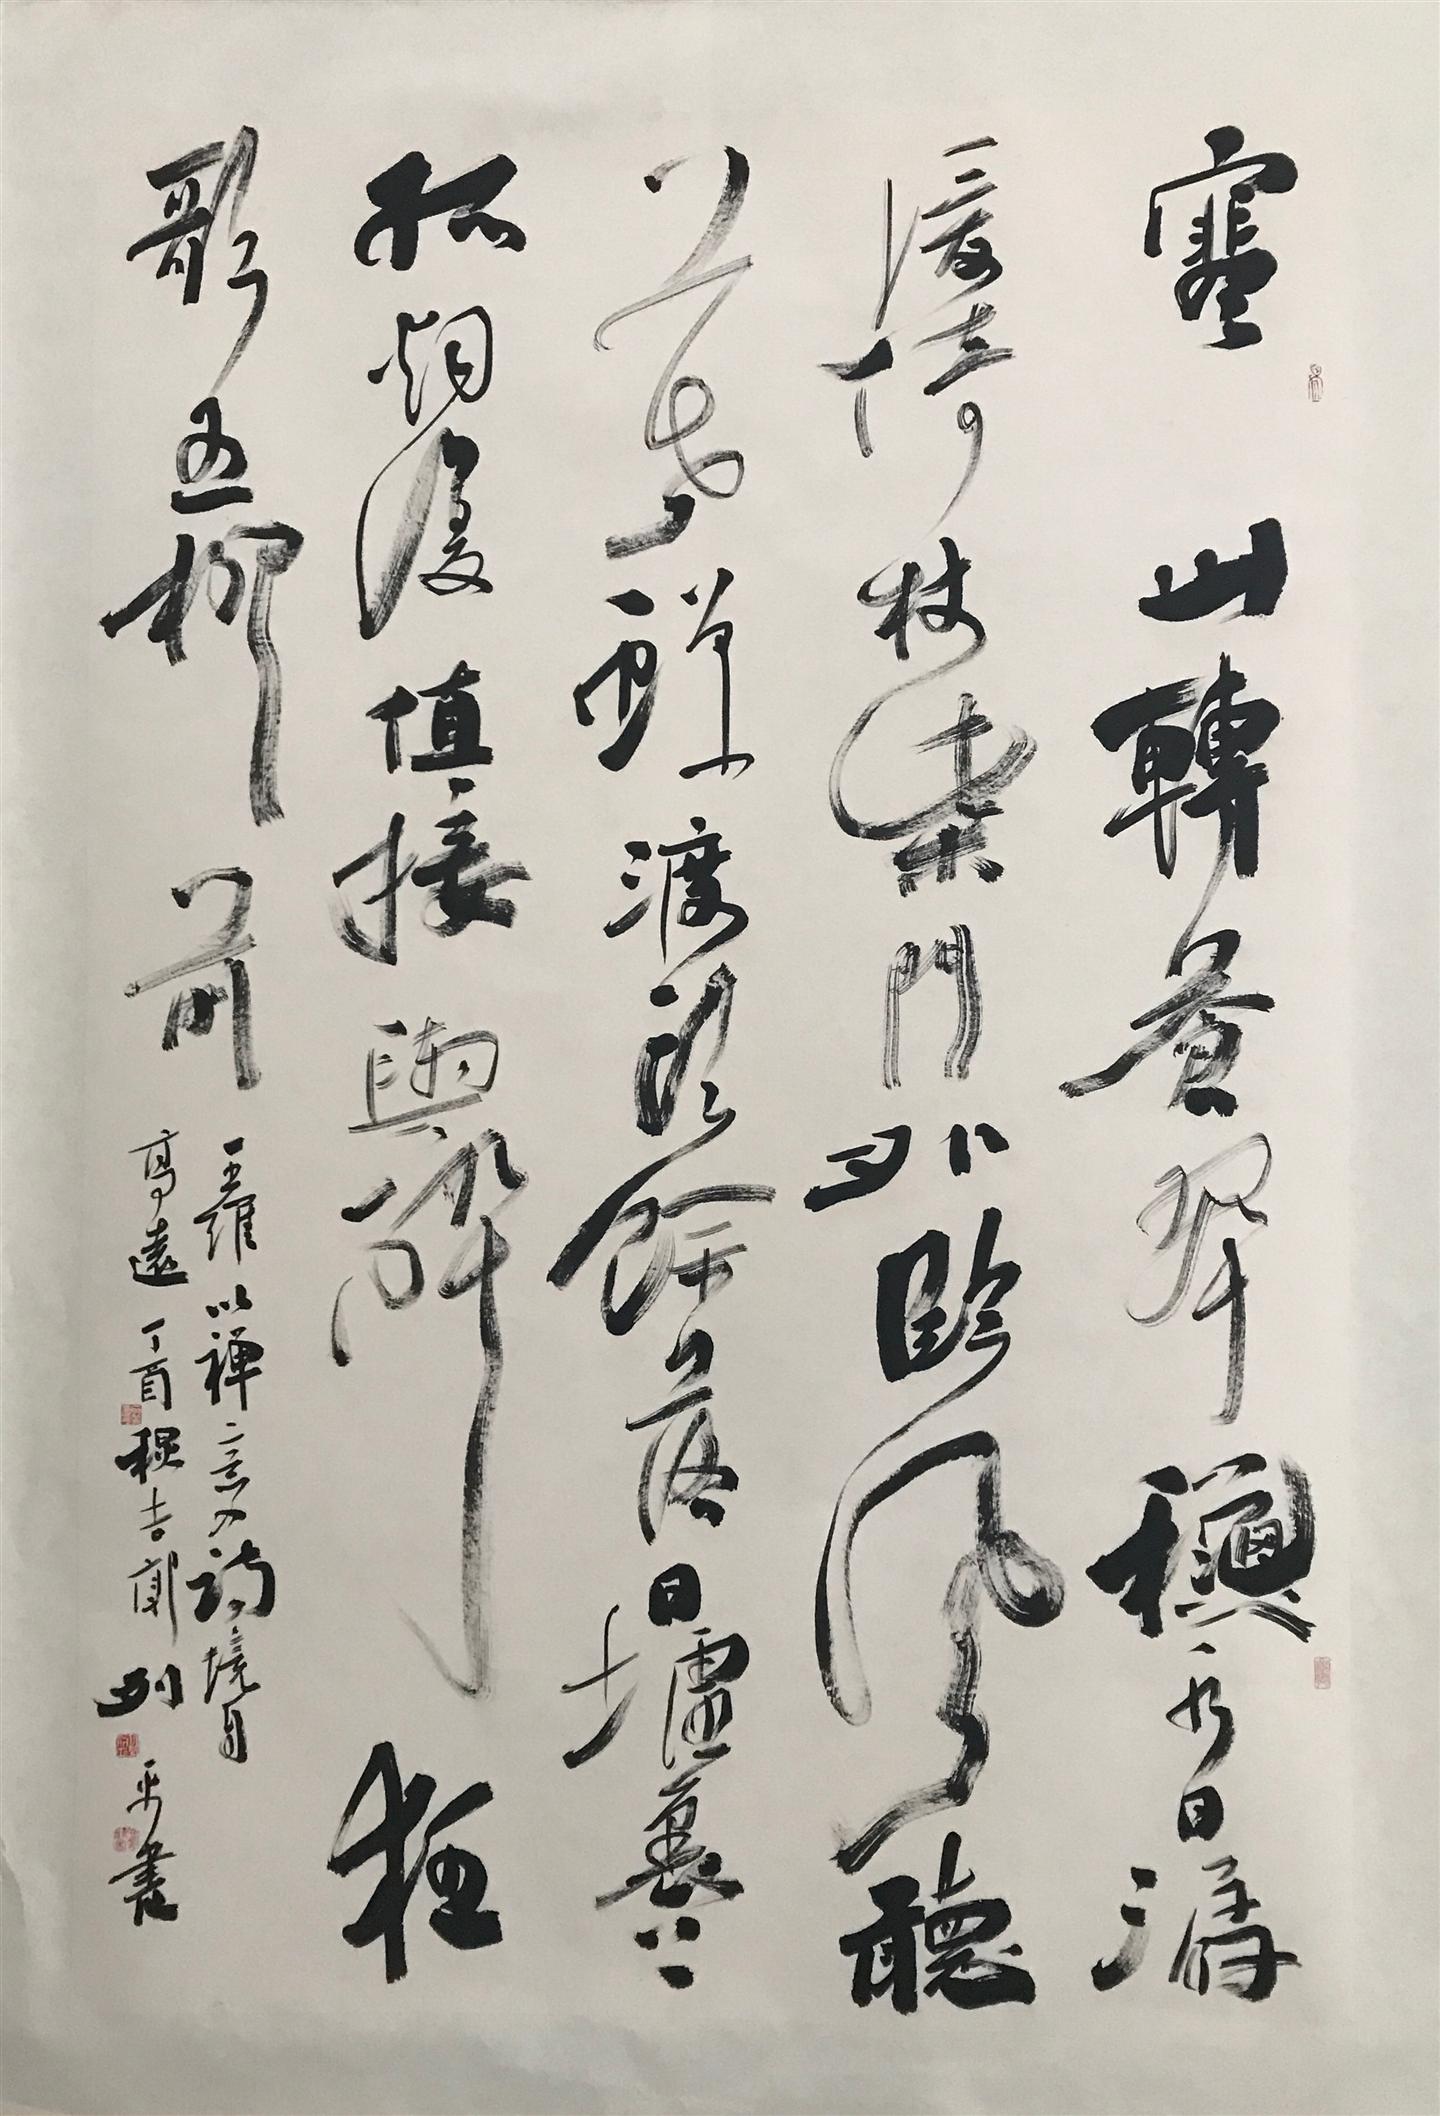 寒山轉蒼翠龝水日潺
湲倚杖柴門外臨風聽
暮蟬渡頭餘落日墟裏上
孤烟復值接輿醉狂
歌五柳前
王維以禪意入詩境自
高遠丁酉吉列平書